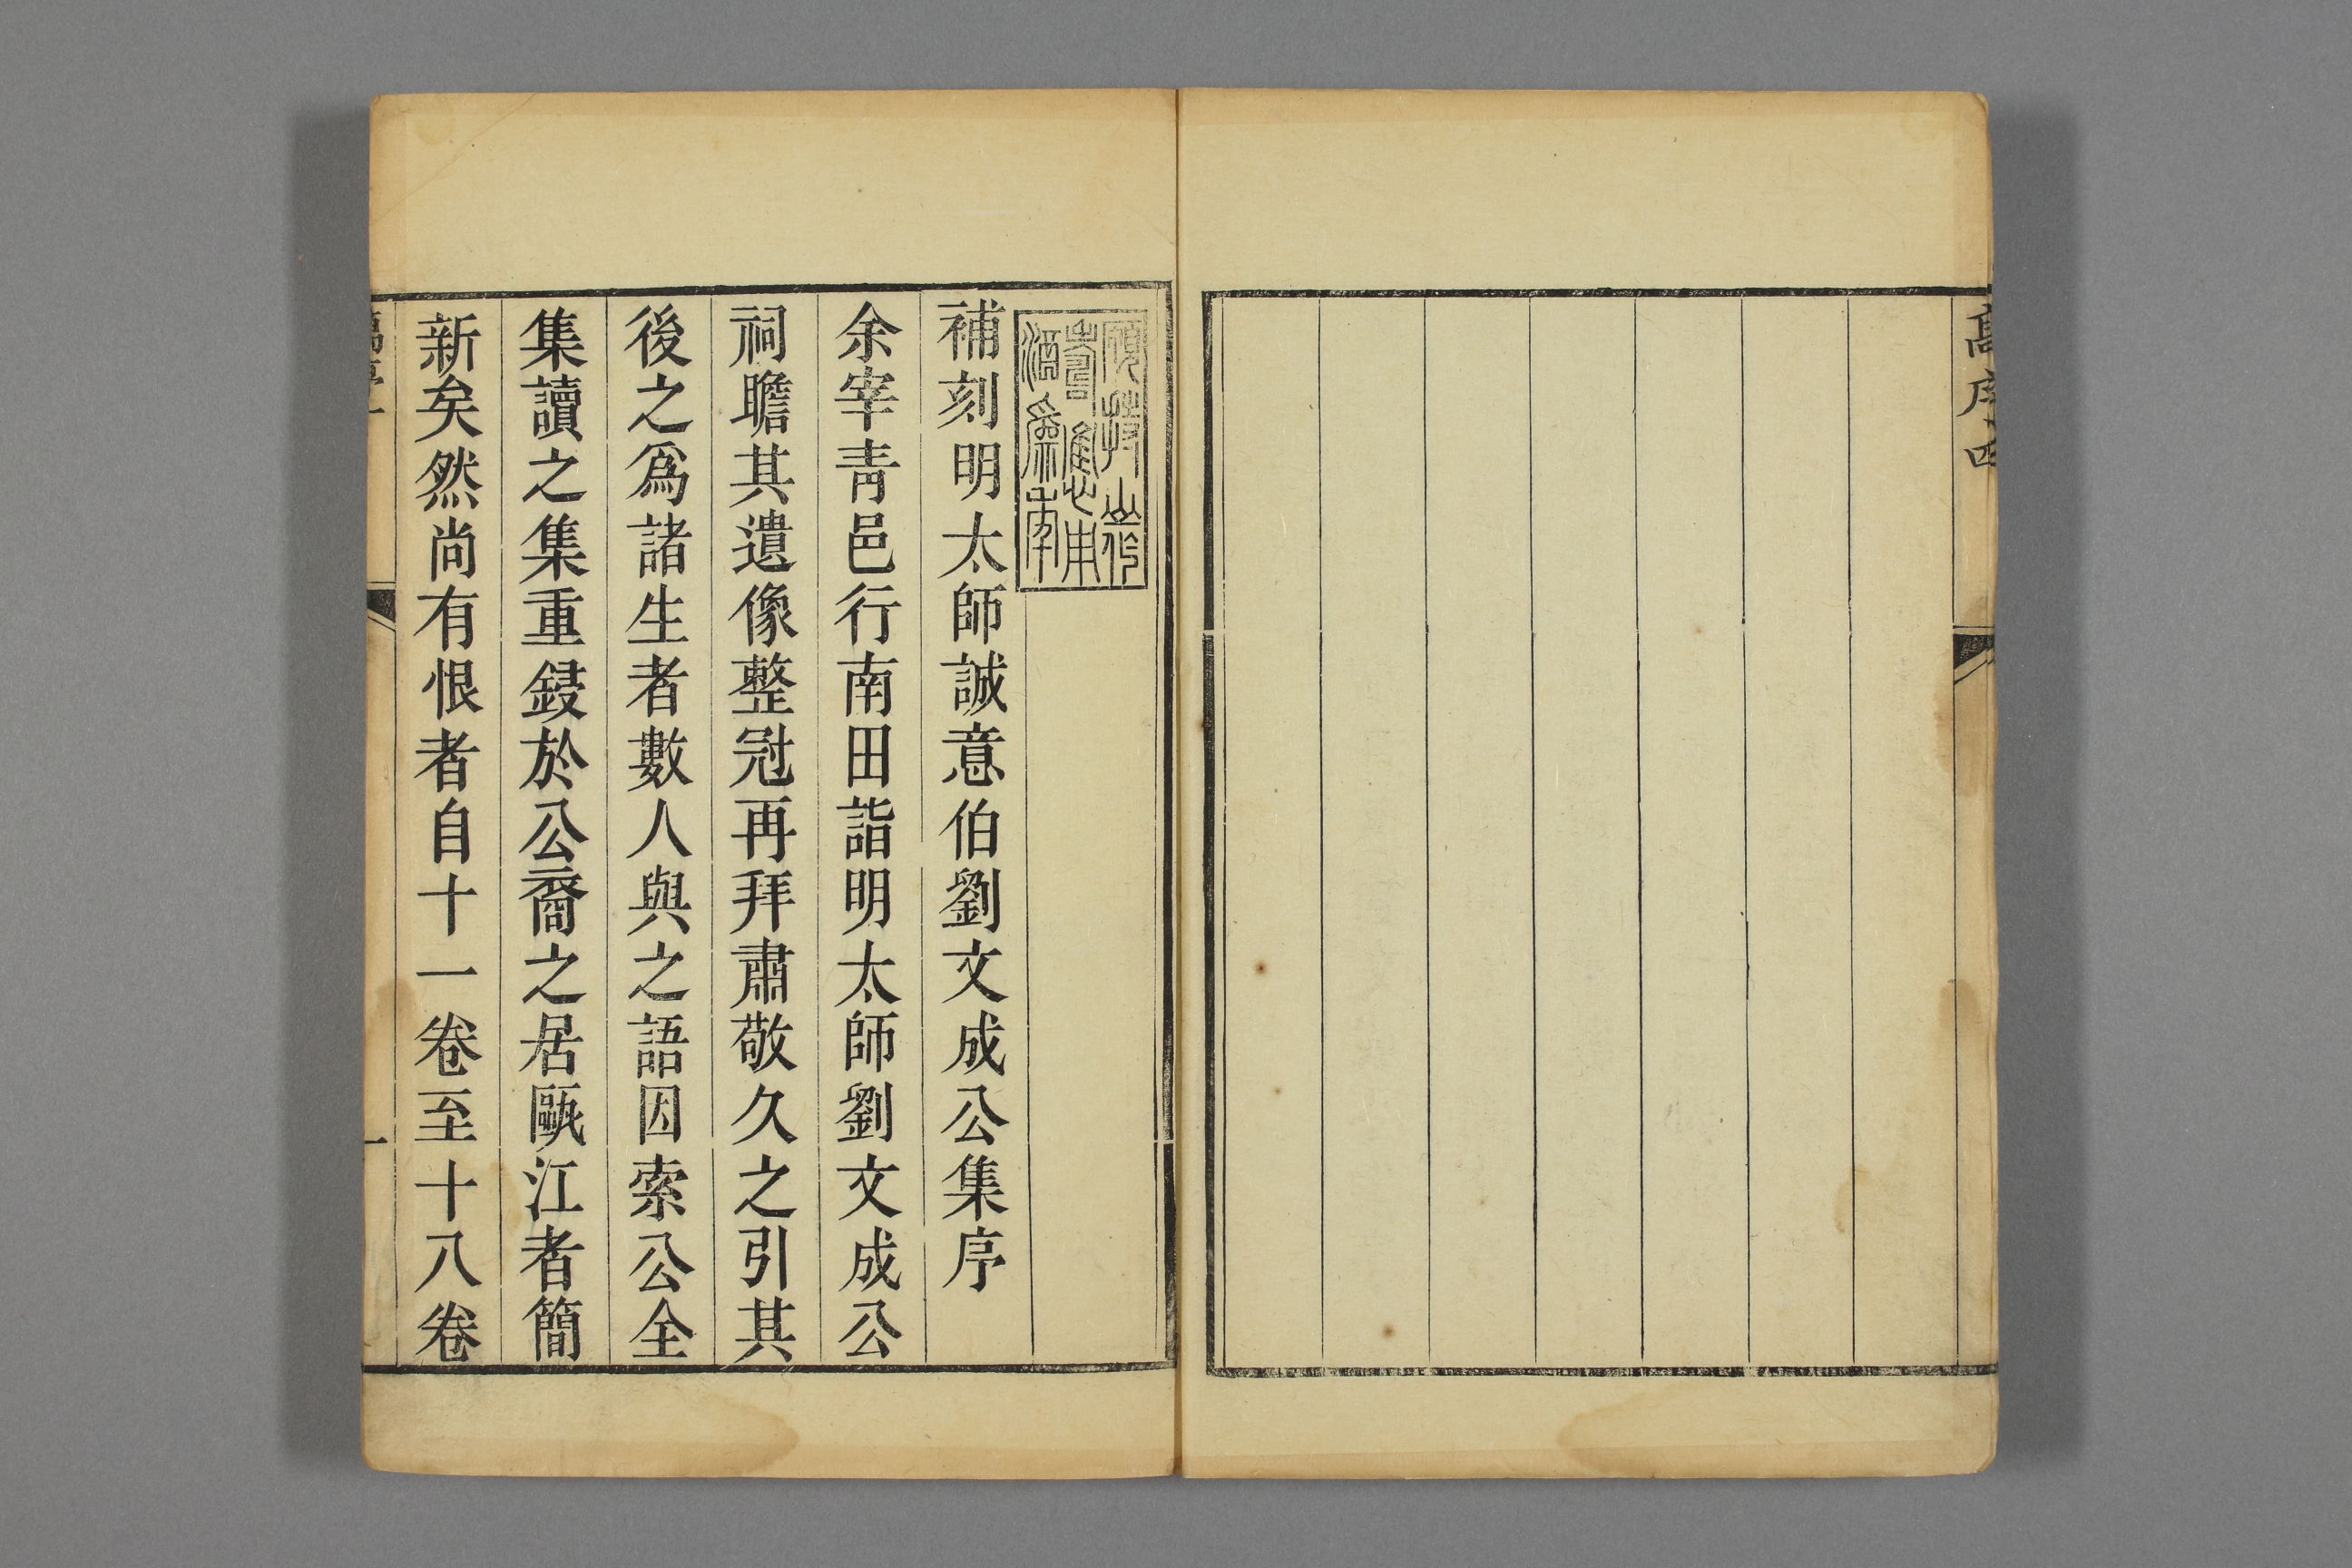 高序 四
補刻明太師誠意伯劉文成公集序
余宰青邑行南田詣明太師劉文成公
祠瞻其遺像整冠再拜肅敬久之引其
後之爲諸生者數人與之語因索公全
集讀之集重鋟於公裔之居甌江者簡
新矣然尚有恨者自十一卷至十八卷
萬序 一